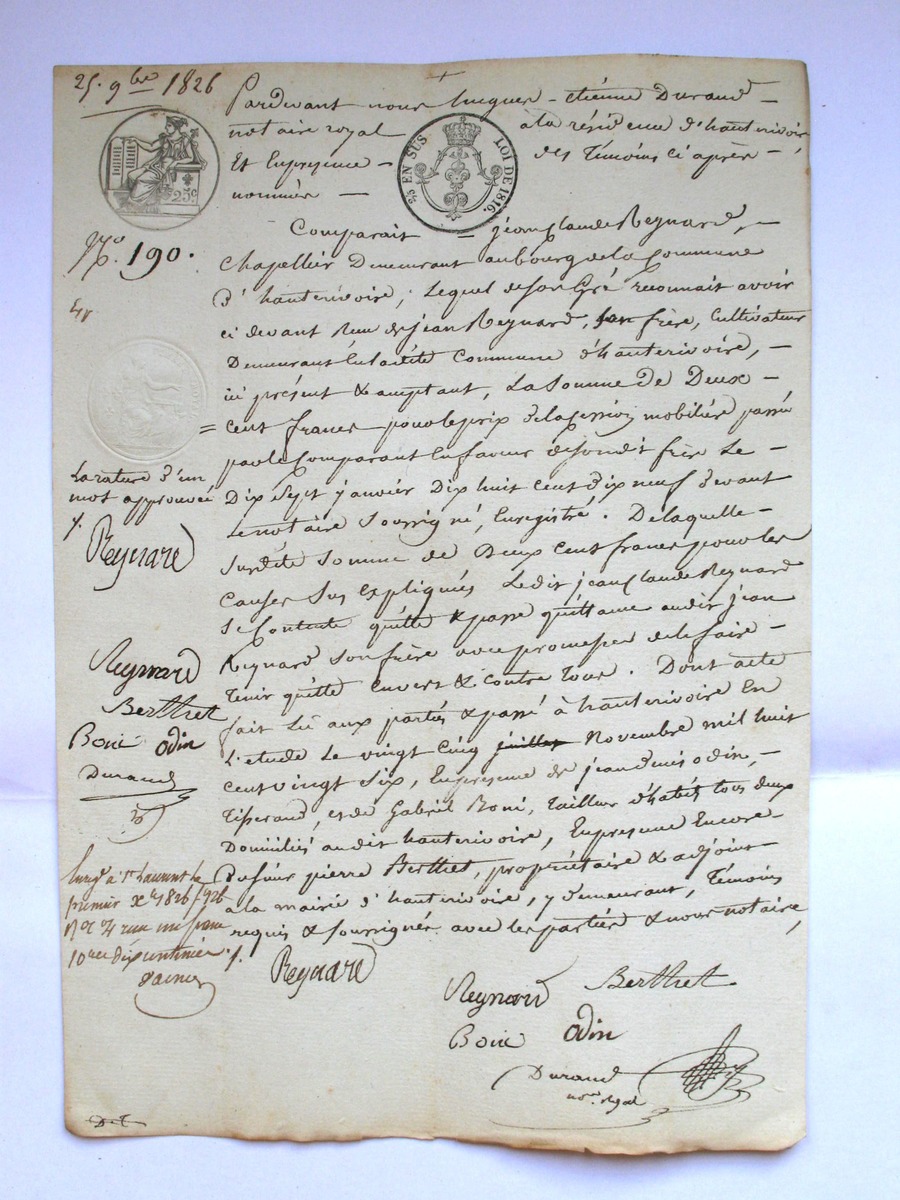 25. 9bre 1826
Pardevant nous hugues-étienne Durand
notaire royal à la résidence d'hauterivoire,
Et En presence des Témoins ci après
nommés
25c.
25 EN SUS LOI DE 1816.
No. 190.
Comparait jean Claude Reynard,
Chapellier Demeurant au bourg de la Commune
d'hauterivoire, Lequel de son Gré reconnait avoir
ci devant Reçu de jean Reynard, son frère, Cultivateur
Demeurant En la dite Commune d'hauterivoire,
ici présent & acceptant, La Somme de Deux
= cent francs pour le prix de la cession mobilière passée
par le Comparant En faveur de son dit frère Le
Dix Sept janvier Dix huit cent dix neuf devant
Le notaire Soussigné, Enregistré. De laquelle
Susdite Somme de Deux cent francs pour les
Causes Sus expliquées Le dit jean Claude Reynard
Se Contente quitte & passe quittance au dit jean
Reynard Son frère avec promesse de le faire
Tenir quitte Envers & Contre Tous. Dont acte
fait Lu aux parties & passé à hauterivoire En
L'étude Le vingt Cinq juillet Novembre mil huit
Cent vingt Six, En présence de jean denis odin,
Tisserand, et de Gabriel Boni, Tailleur d'habits Tous deux
Domiciliés au dit hauterivoire, En présence Encore
Du Sieur pierre Berthet, propriétaire & adjoint
à la mairie d'hauterivoire, y demeurant, Témoins
requis & Soussignés avec les parties & nous notaire,
La rature d'un
mot approuvée
Reynard
Reynard
Berthet
Boni odin
Durand
Enregé à St Laurent le
premier Xbre 1826
reçu un franc
10me dix centimes
Reynard
Reynard Berthet
Boni odin
Durand
nore royal